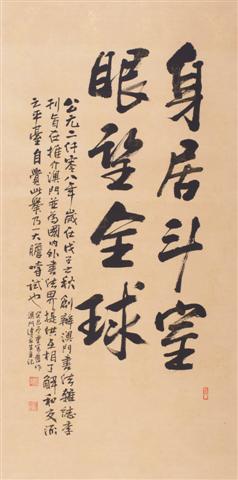 身居斗室
眼望全球
公元二仟零八年歲在戊子之秋創辦澳門書法雜誌季
刊旨在推介澳門並為國內外書法界提供互相了解和交流
之平臺自賞此舉乃一大膽嘗試也